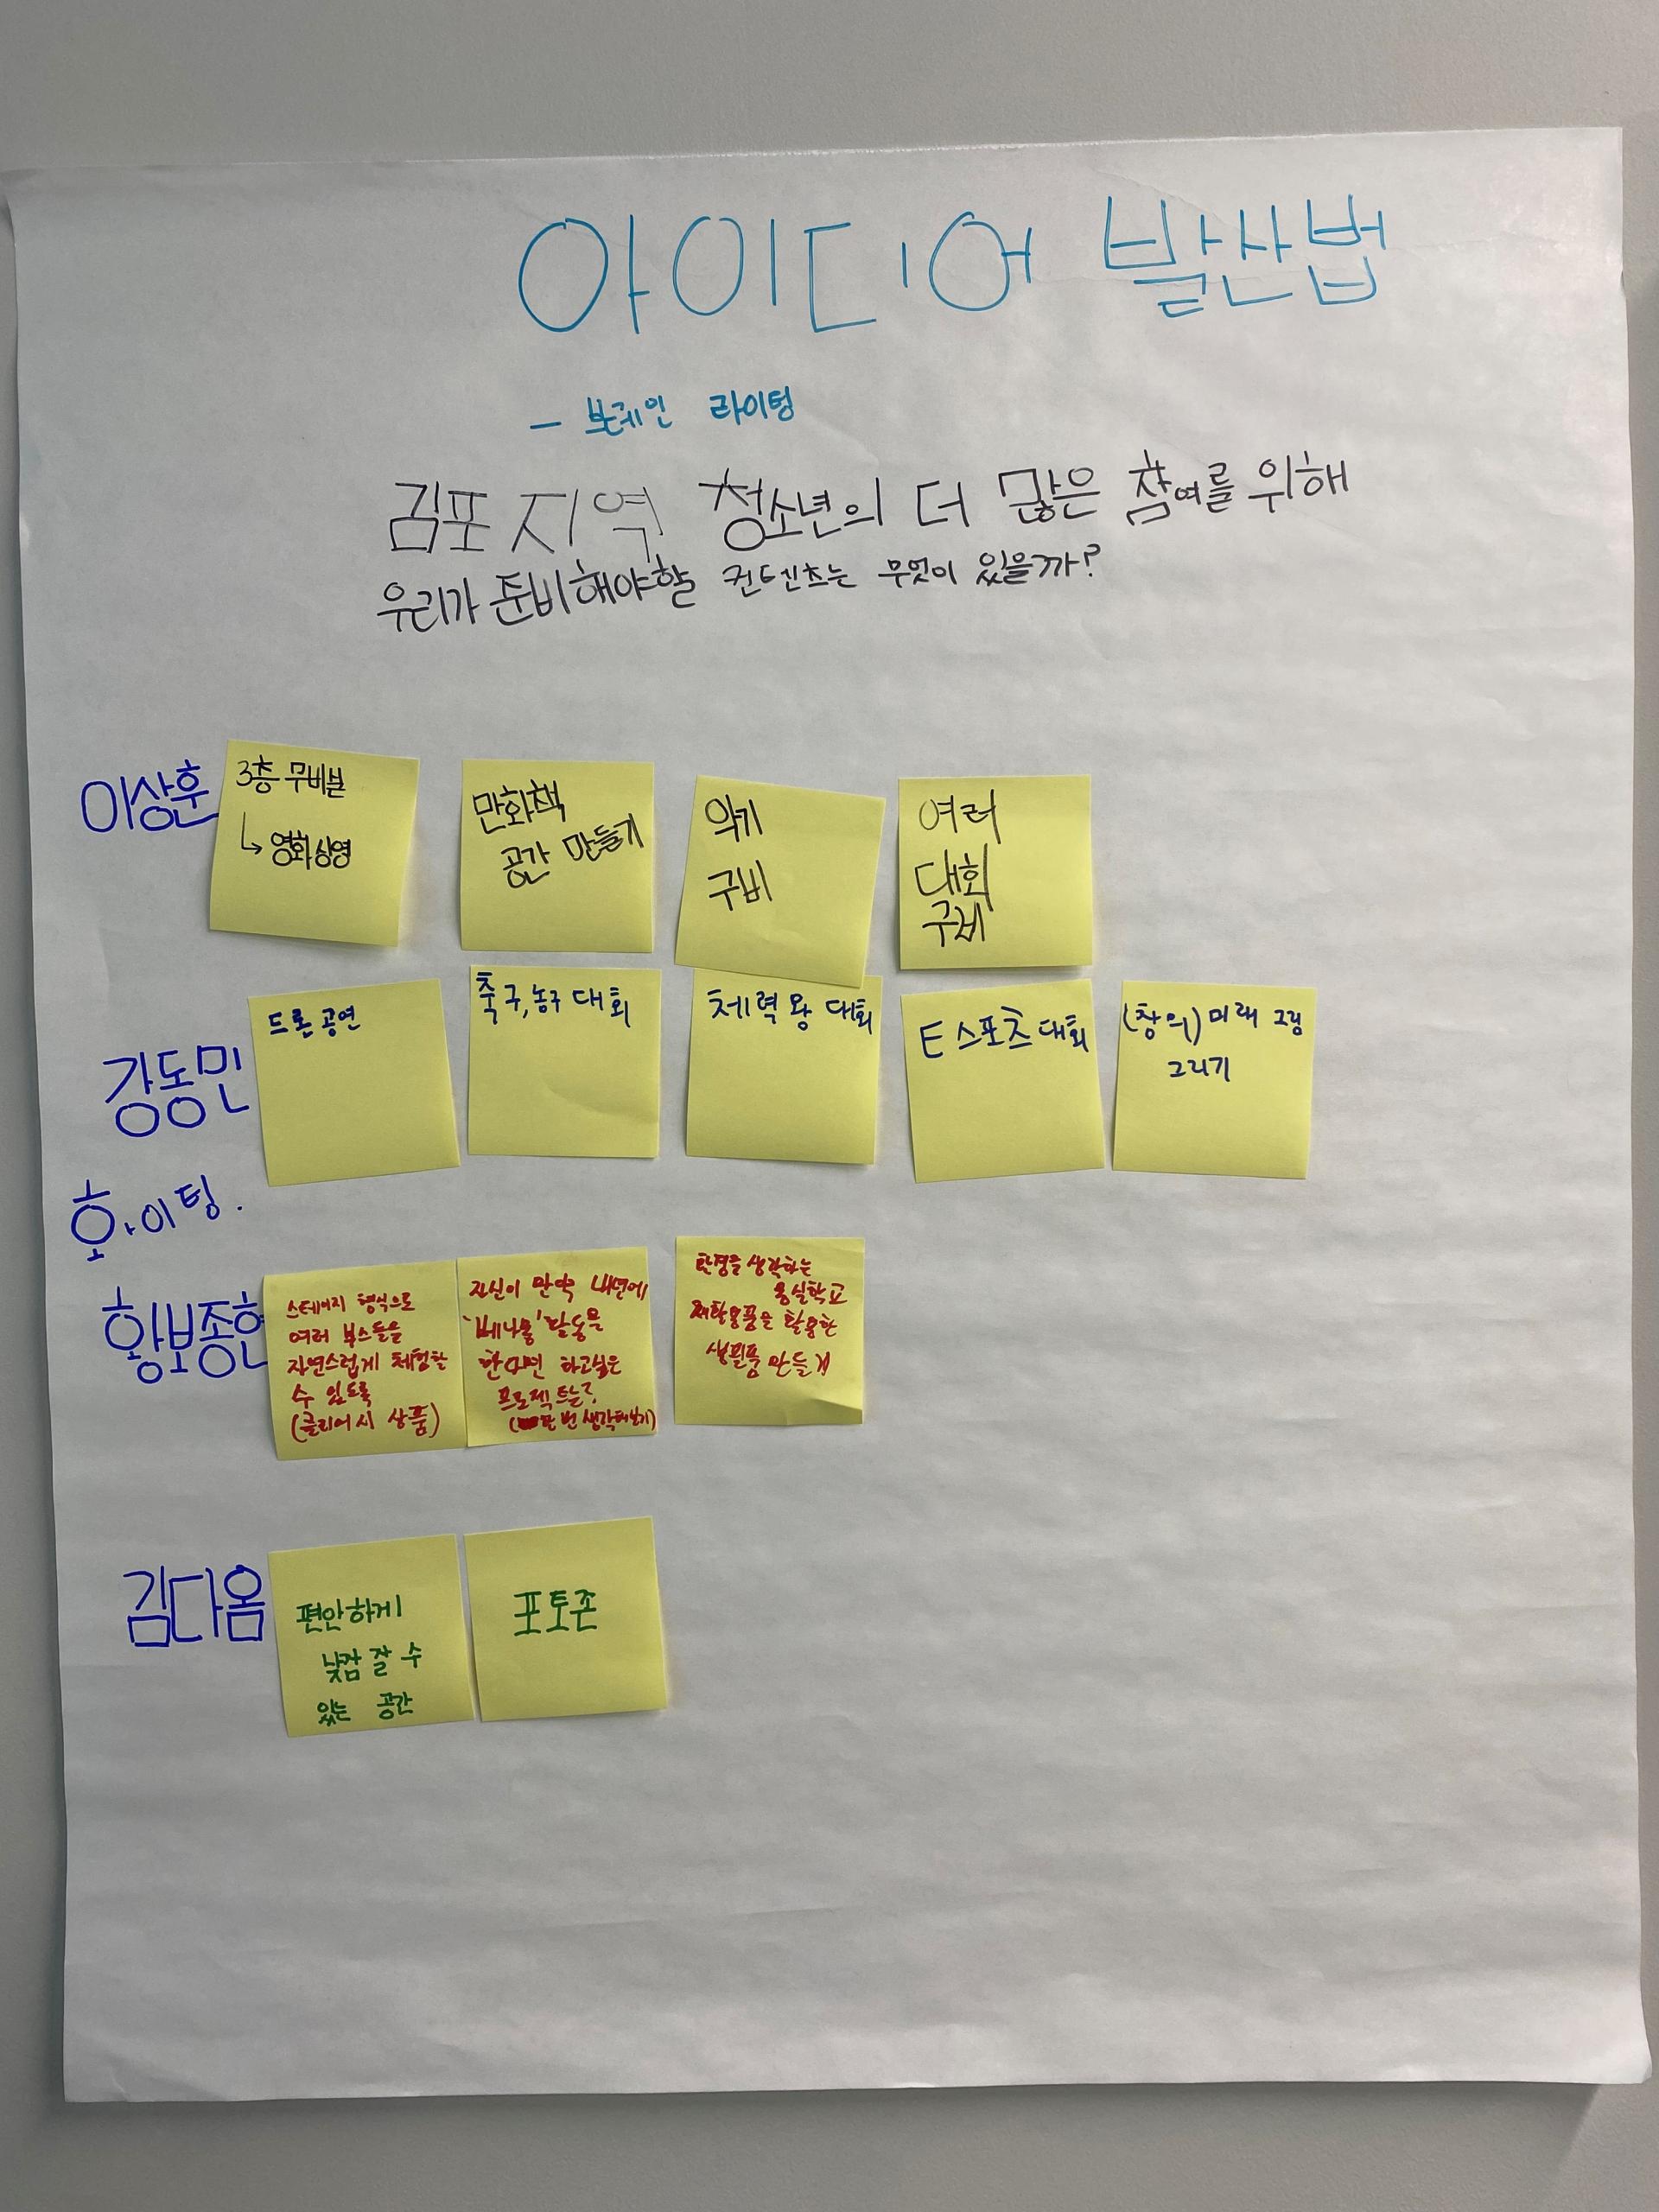 아이디어 발산법
- 브레인 라이팅
김포 지역 청소년의 더 많은 참여를 위해
우리가 준비해야할 컨텐츠는 무엇이 있을까?
이상훈
3층 무비븐
↳ 영화상영
만화책
공간 만들기
악기
구비
여러
대회
구비
강동민
드론 공연
축구,농구 대회
체력왕 대회
E스포츠 대회
(창의) 미래 그림
그리기
화이팅.
황보종현
스테이지 형식으로
여러 부스들을
자연스럽게 체험할
수 있도록
(클리어시 상품)
자신이 만약 내년에
'베나울' 활동을
한다면 하고싶은
프로젝트는?
(한번 생각해보기)
환경을 생각하는
몽실학교
재활용품을 활용한
생필품 만들기
김다옴
편안하게
낮잠 잘 수
있는 공간
포토존